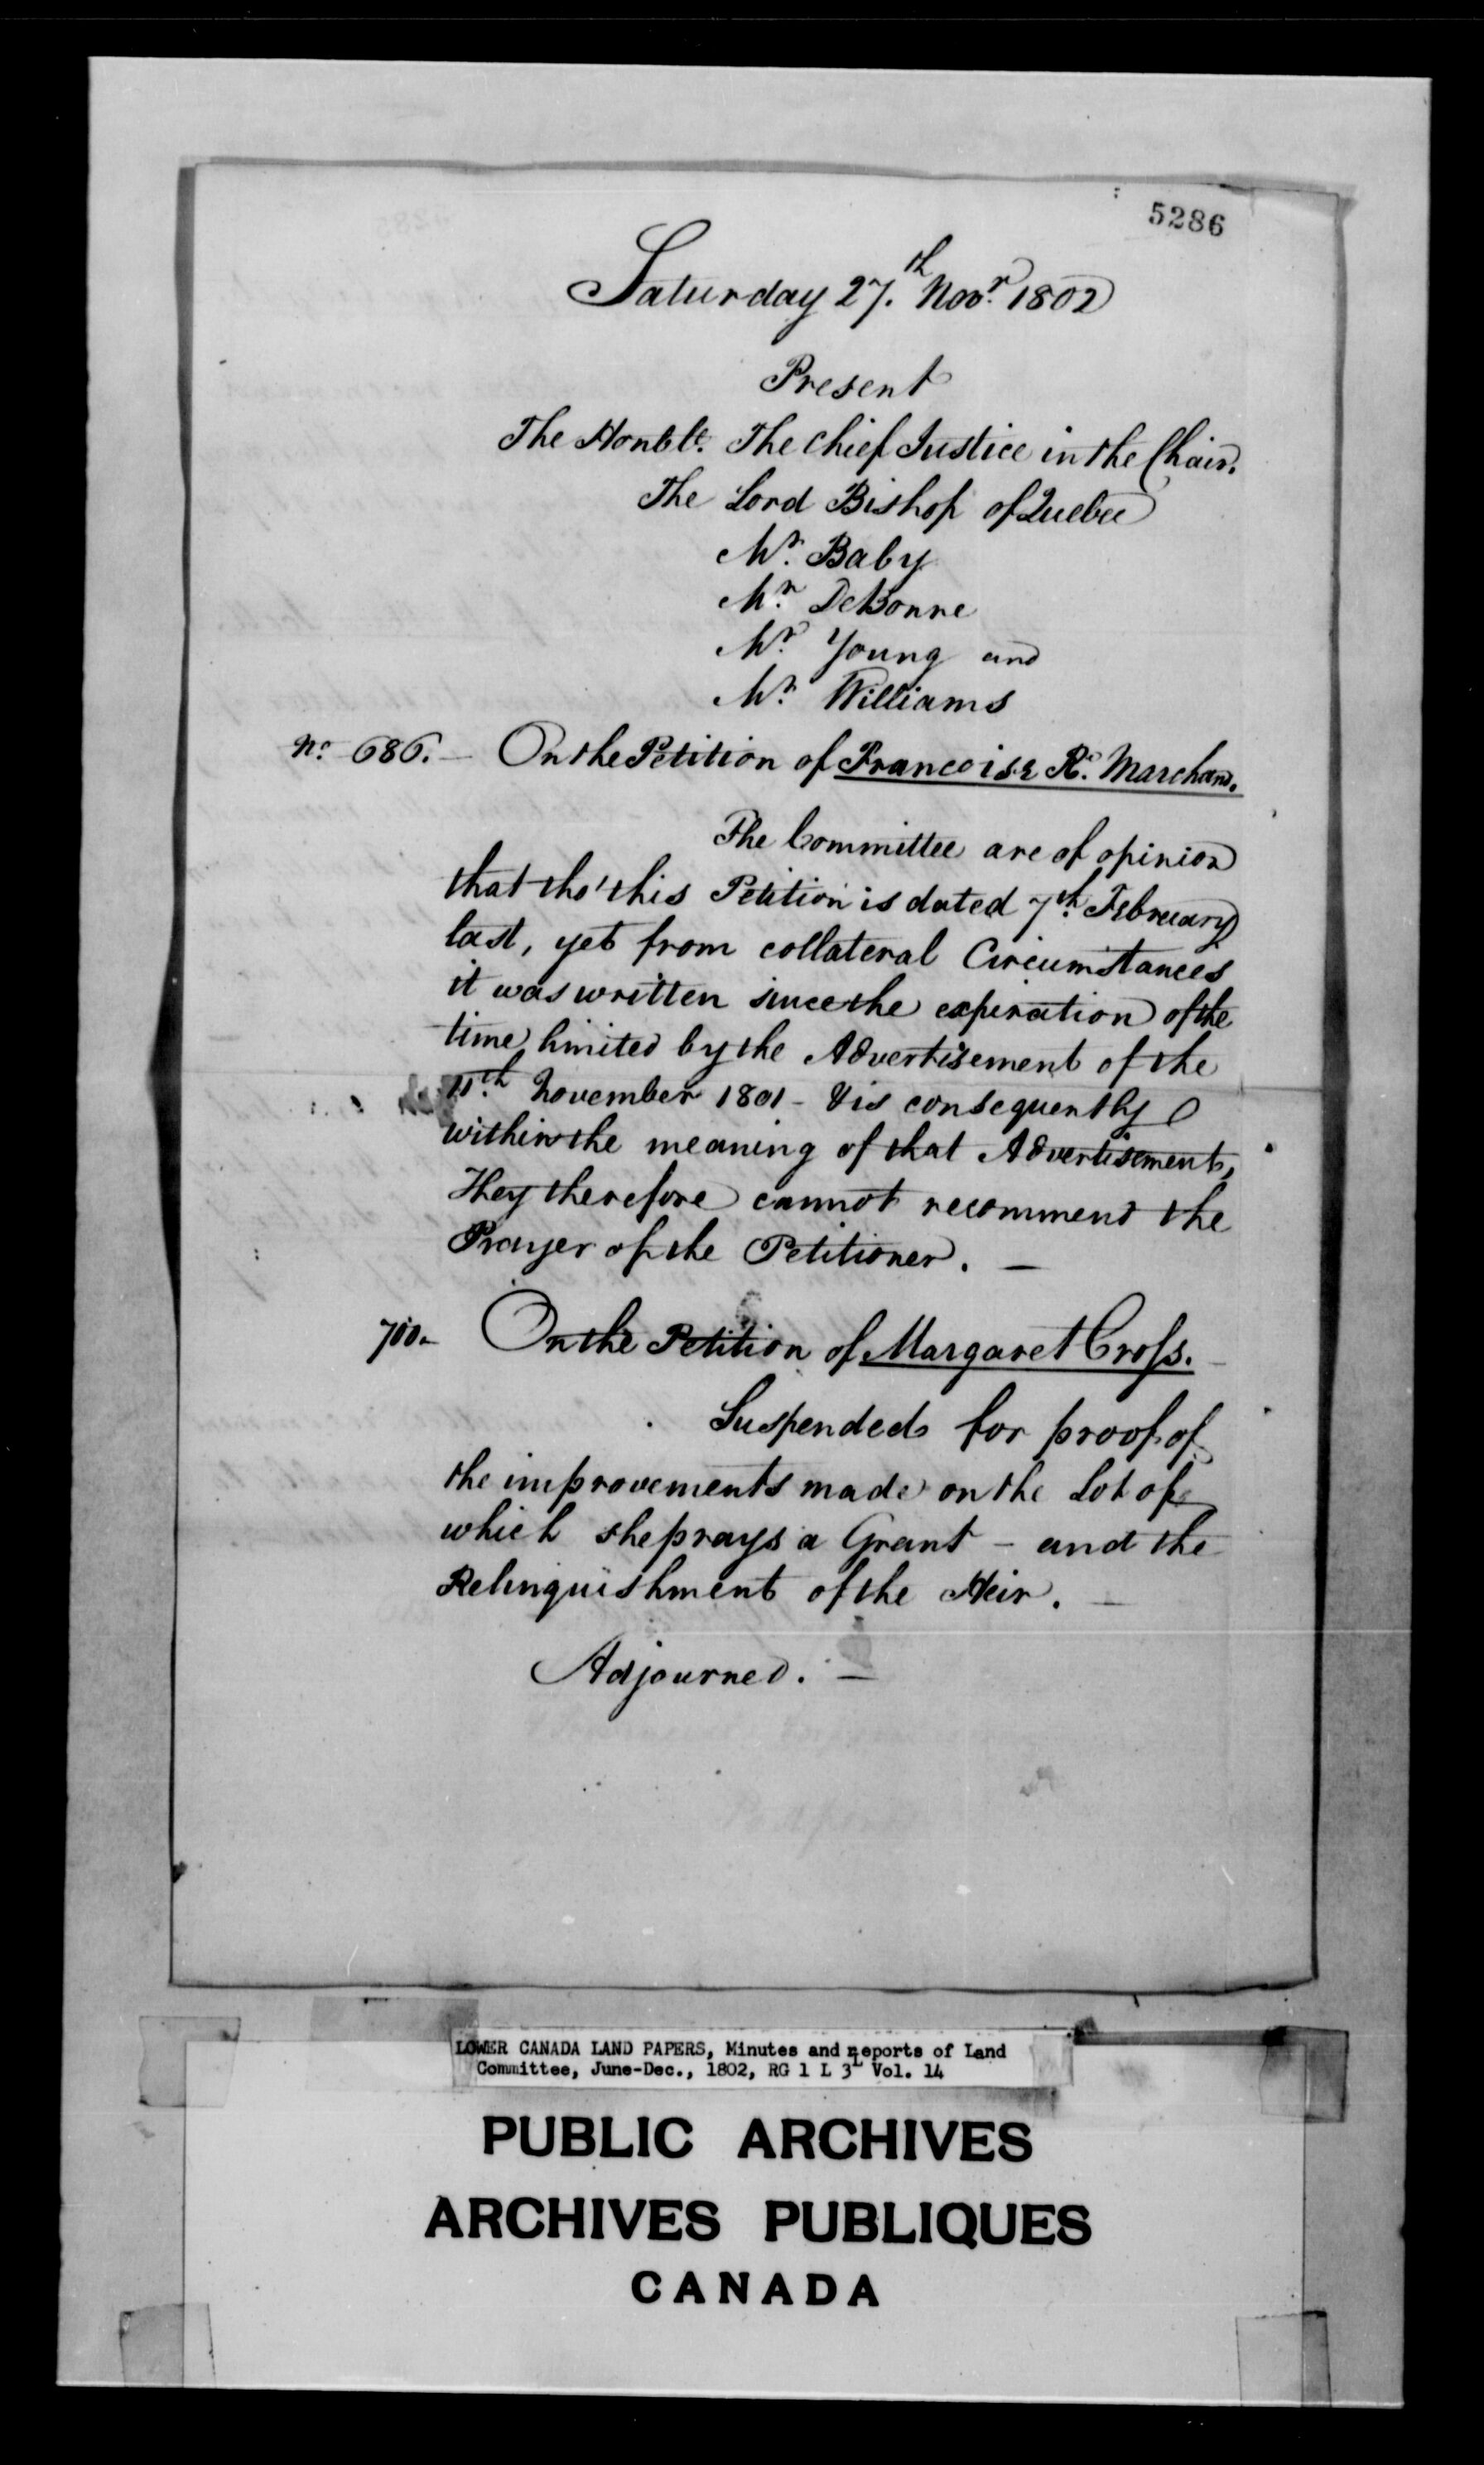 5286
Saturday 27.th Novr. 1802
Present
The Honble. The Chief Justice in the Chair.
The Lord Bishop of Quebec
Mr. Baby
Mr. DeBonne
Mr. Young and
Mr. Williams
No. 686. — On the Petition of Francoise Re. Marchand.
The Committee are of opinion
that tho' this Petition is dated 7th. February
last, yet from collateral Circumstances
it was written since the expiration of the
time limited by the Advertisement of the
11th. November 1801 - & is consequently
within the meaning of that Advertisement,
They therefore cannot recommend the
Prayer of the Petitioner. —
700 — On the Petition of Margaret Cross. —
Suspended for proof of
the improvements made on the Lot of
which she prays a Grant - and the
Relinquishment of the Heir. —
Adjourned. —
LOWER CANADA LAND PAPERS, Minutes and reports of Land
Committee, June-Dec., 1802, RG 1 L 3L Vol. 14
PUBLIC ARCHIVES
ARCHIVES PUBLIQUES
CANADA